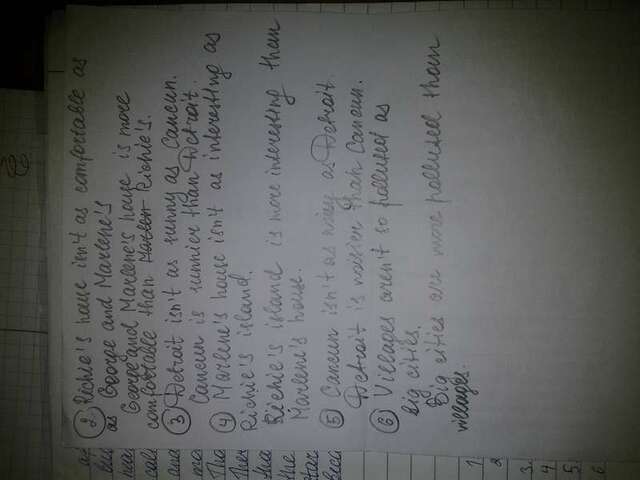 2. Richie's house isn't as comfortable as
as George and Marlene's
George and Marlene's house is more
comfortable than Richie's.
3 Detroit isn't as sunny as Cancun.
Cancun is sunnier than Detroit.
4 Marlene's house isn't as interesting as
Richie's island.
Richie's island is more interesting than
Marlene's house.
5 Cancun isn't as noisy as Detroit.
Detroit is noisier than Cancun.
6 Villages aren't so polluted as
big cities.
Big cities are more polluted than
villages.
1.
2
3.
4
5.
6